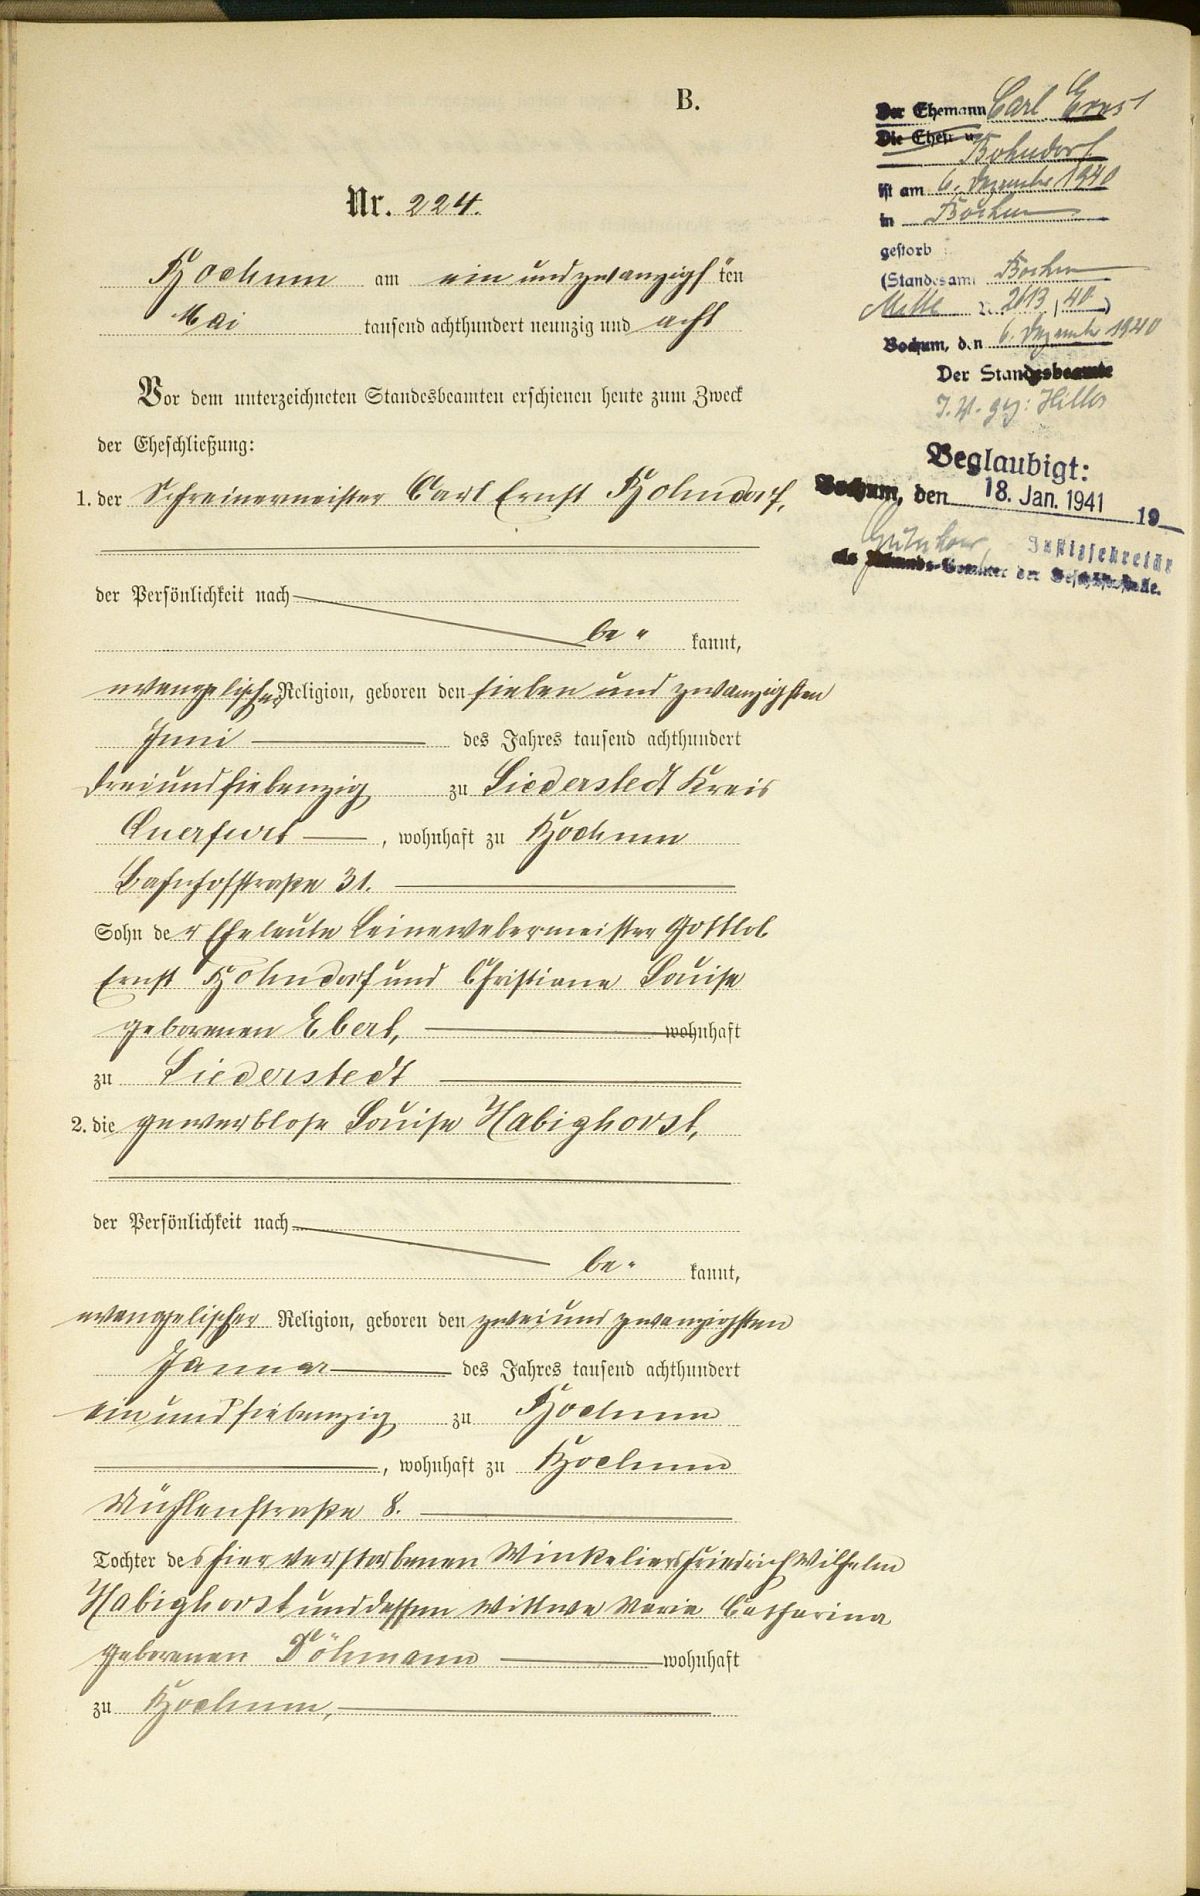 B.
Nr. 224.
Bochum am ein und zwanzigsten
Mai tausend achthundert neunzig und acht
Vor dem unterzeichneten Standesbeamten erschienen heute zum Zweck
der Eheschließung:
1. der Schreinermeister Carl Ernst Bohndorf,
der Persönlichkeit nach
be- kannt,
evangelischer Religion, geboren den sieben und zwanzigsten
Juni des Jahres tausend achthundert
drei und siebenzig zu Liederstedt Kreis
Querfurt, wohnhaft zu Bochum
Bahnhofstraße 31.
Sohn der Eheleute Leinewebermeister Gottlob
Ernst Bohndorf und Christiane Louise
geborenen Ebert, wohnhaft
zu Liederstedt
2. die gewerblose Louise Habighorst,
der Persönlichkeit nach
be- kannt,
evangelischer Religion, geboren den zwei und zwanzigsten
Januar des Jahres tausend achthundert
ein und siebenzig zu Bochum
, wohnhaft zu Bochum
Mühlenstraße 8.
Tochter des hier verstorbenen Winkeliers Friedrich Wilhelm
Habighorst und dessen Wittwe Maria Catharina
geborenen Döhmann wohnhaft
zu Bochum,
Der Ehemann Carl Ernst
Die Ehefrau
Bohndorf
ist am 6. Dezember 1940
in Bochum
gestorb
(Standesamt Bochum
Mitte Nr. 2613/40)
Bochum, den 6. Dezember 1940
Der Standesbeamte
J. V. gez: Hiller
Beglaubigt:
Bochum, den 18. Jan. 1941 19
Justizsekretär
als Urkunds-Beamter der Geschäftsstelle.